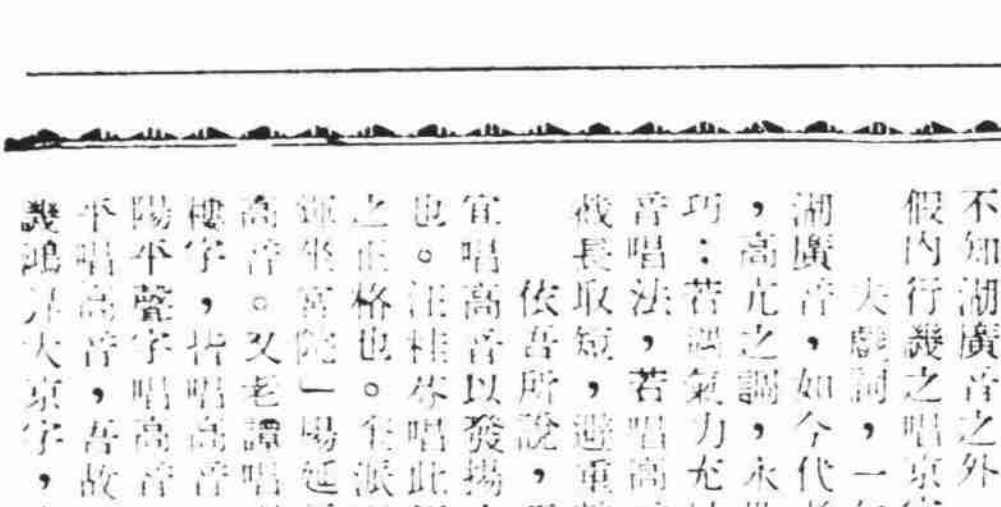 不知湖廣音之外
假內行譏之唱京
夫戲詞，一
湖廣音，如今代
，高亢之調，永
巧：若調氣力充
音唱法，若唱高
截長取短，避重
依吾所說，
宜唱高音以發揚
也。汪桂芬唱此
之正格也。全派
坐宮院一場延
高音。又老譚唱
樓字，皆唱高音
陽平聲字唱高音
平唱高音，吾故
譏鴻升大京字，